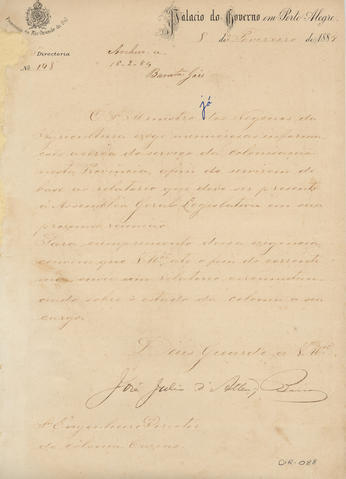 Palacio do Governo em Porto Alegre,
Provincia do Rio Grande do Sul
8 de Fevereiro de 1884
Directoria
Nº 148
Archive-se
18-2-84
Barata Góes
já
O Sr. Ministro dos Negocios da
Agricultura exige minuciosas informa-
ções acerca do serviço da colonisação
nesta Provincia, afim de servirem de
base ao relatorio que deve ser presente
á Assembléa Geral Legislativa em sua
proxima reunião.
Para cumprimento dessa exigencia,
convem que V. Mcê até o fim do corrente
mez envie um relatorio
sobre o estado da colonia a seu
cargo.
Deus Guarde a V. Mcê
José Julio d'Albuq. Barros
Sr. Engenheiro Director
da Colonia Caxias
OR-088